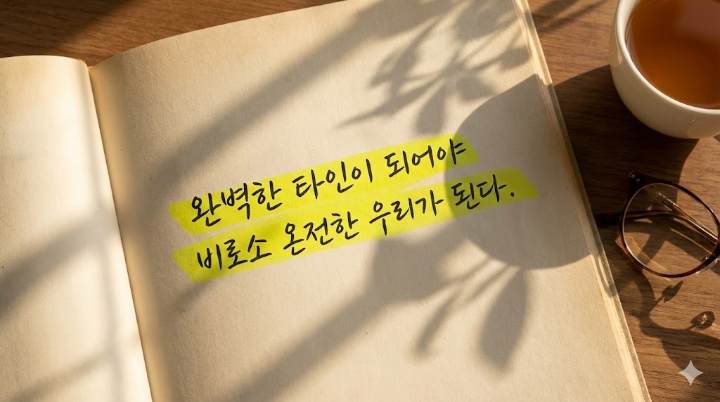 완벽한 타인이 되어야
비로소 온전한 우리가 된다.